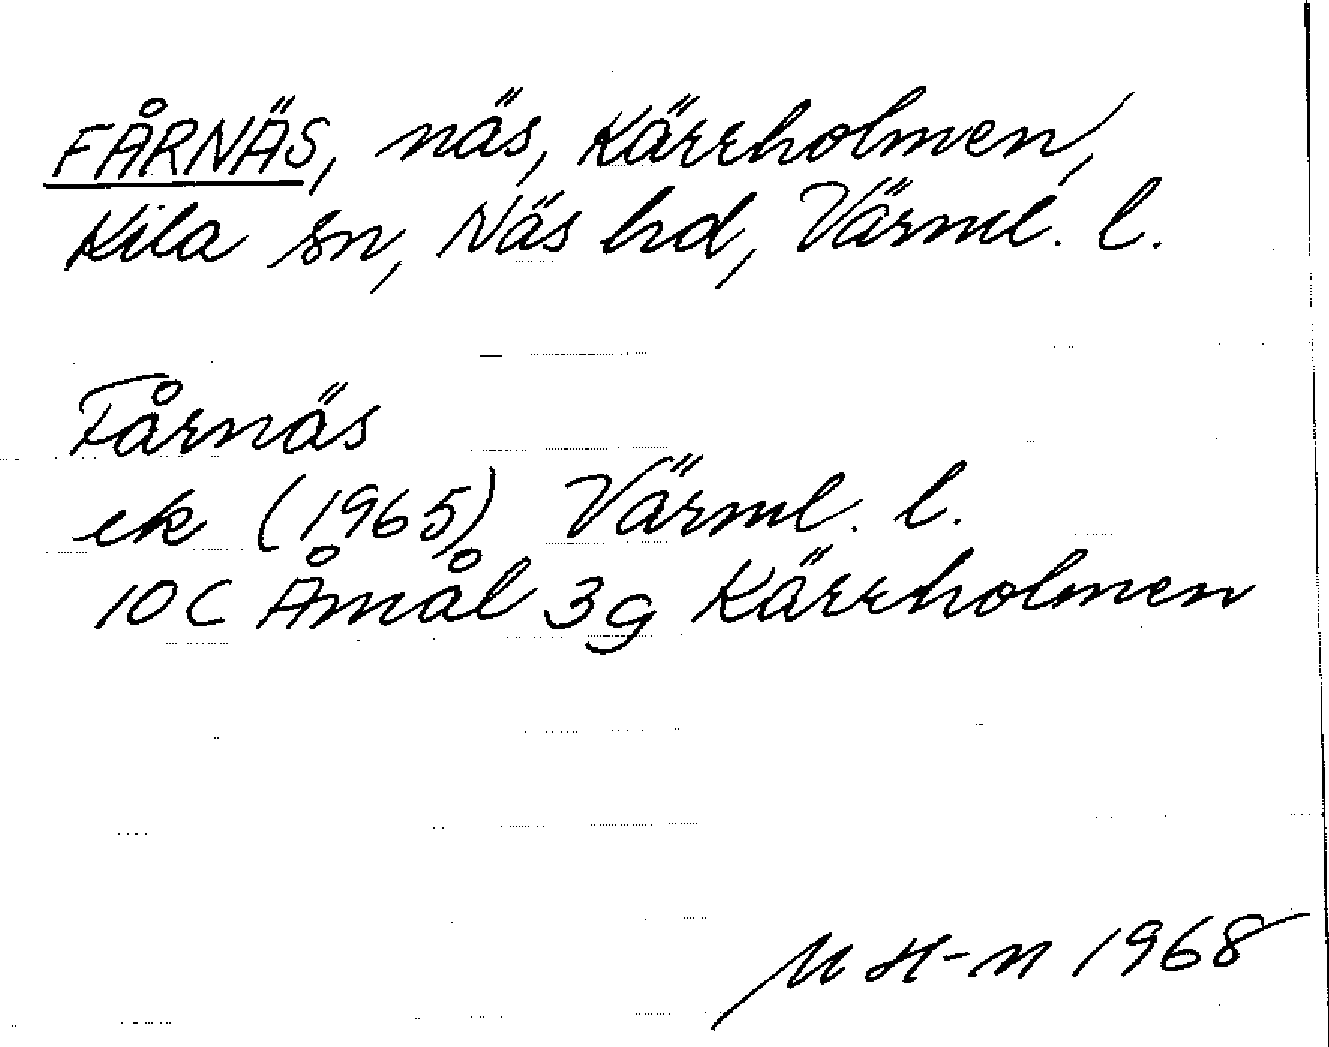 FÅRNÄS, näs, Kärrholmen,
Kila sn, Näs hd, Värml. l.
Fårnäs
ek (1965) Värml. l.
10 C Åmål 3g Kärrholmen
M H-n 1968